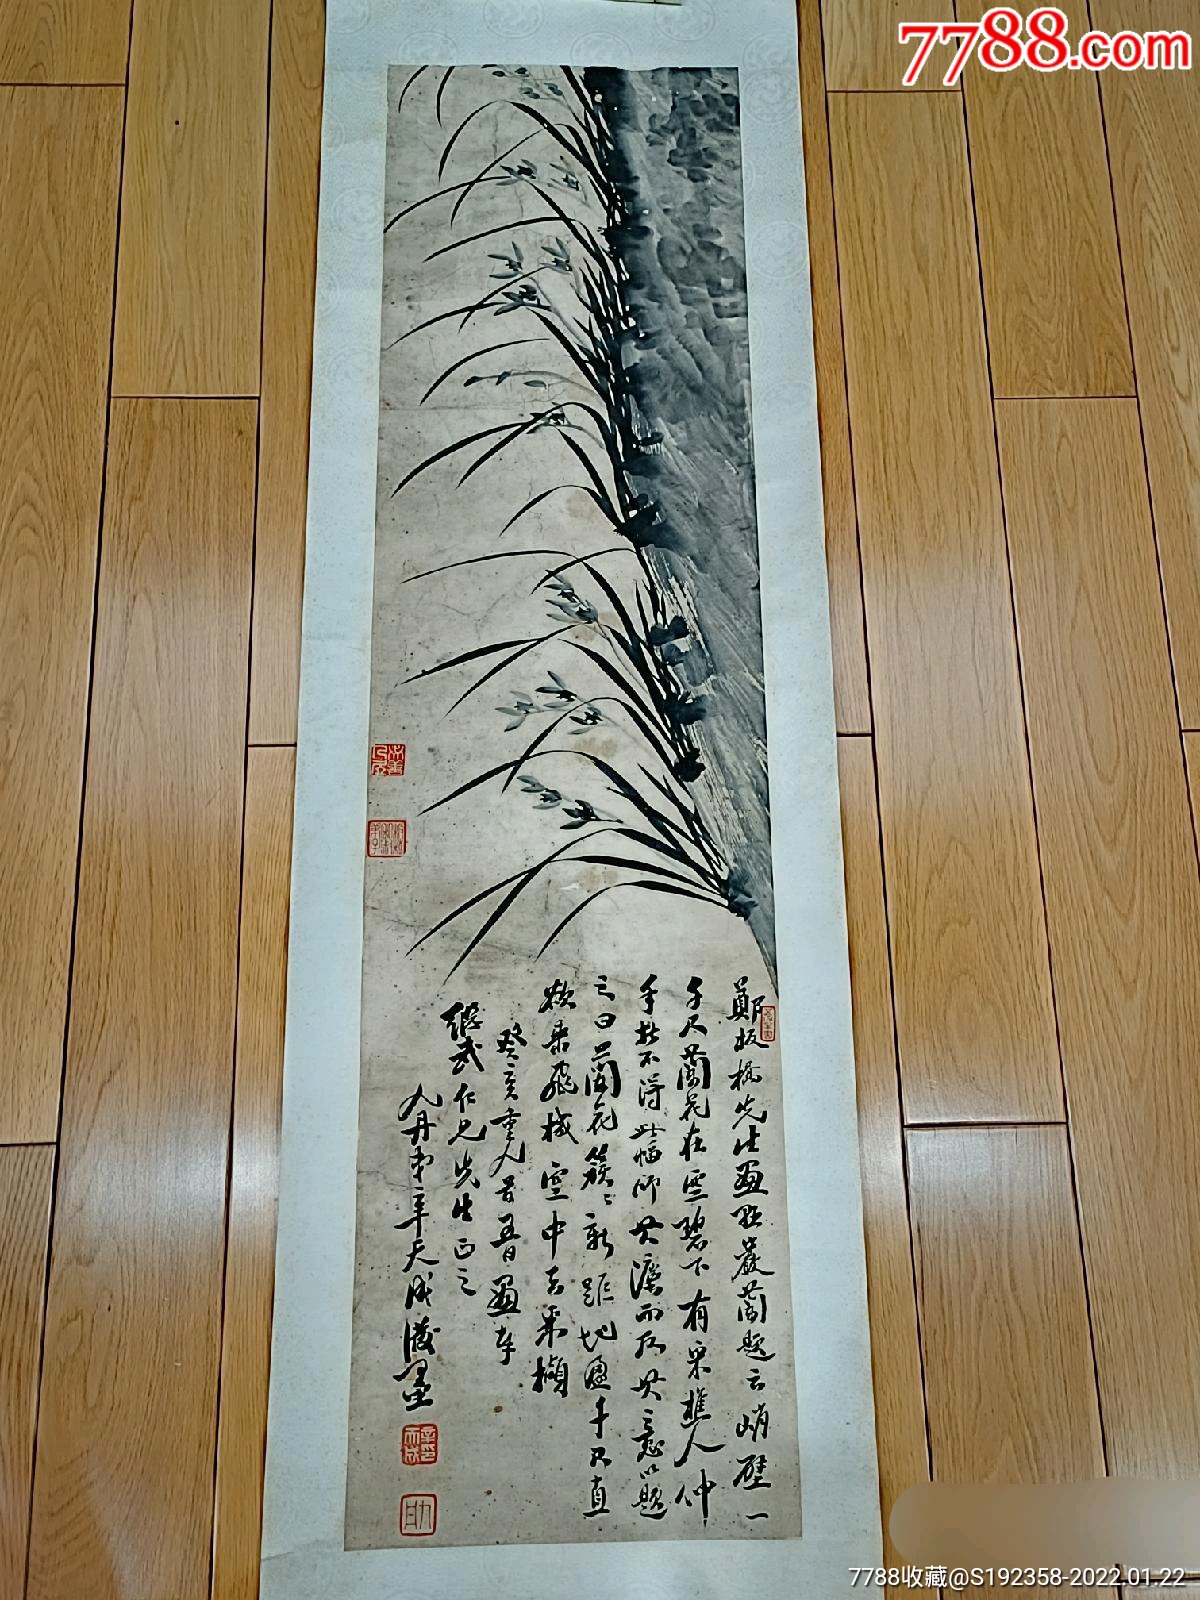 7788.com
鄭板橋先生畫巖蘭題云峭壁一
千尺蘭花在空碧下有采樵人伸
手折不得此幅師其灋而反其意以題
之曰蘭花簇簇新距地逾千尺直
欲乘飛機空中去采擷
癸亥重九畫奉
繼武仁兄先生正之
九丹弟辛天成潑墨
辛天成印
九丹
7788收藏@S192358-2022.01.22